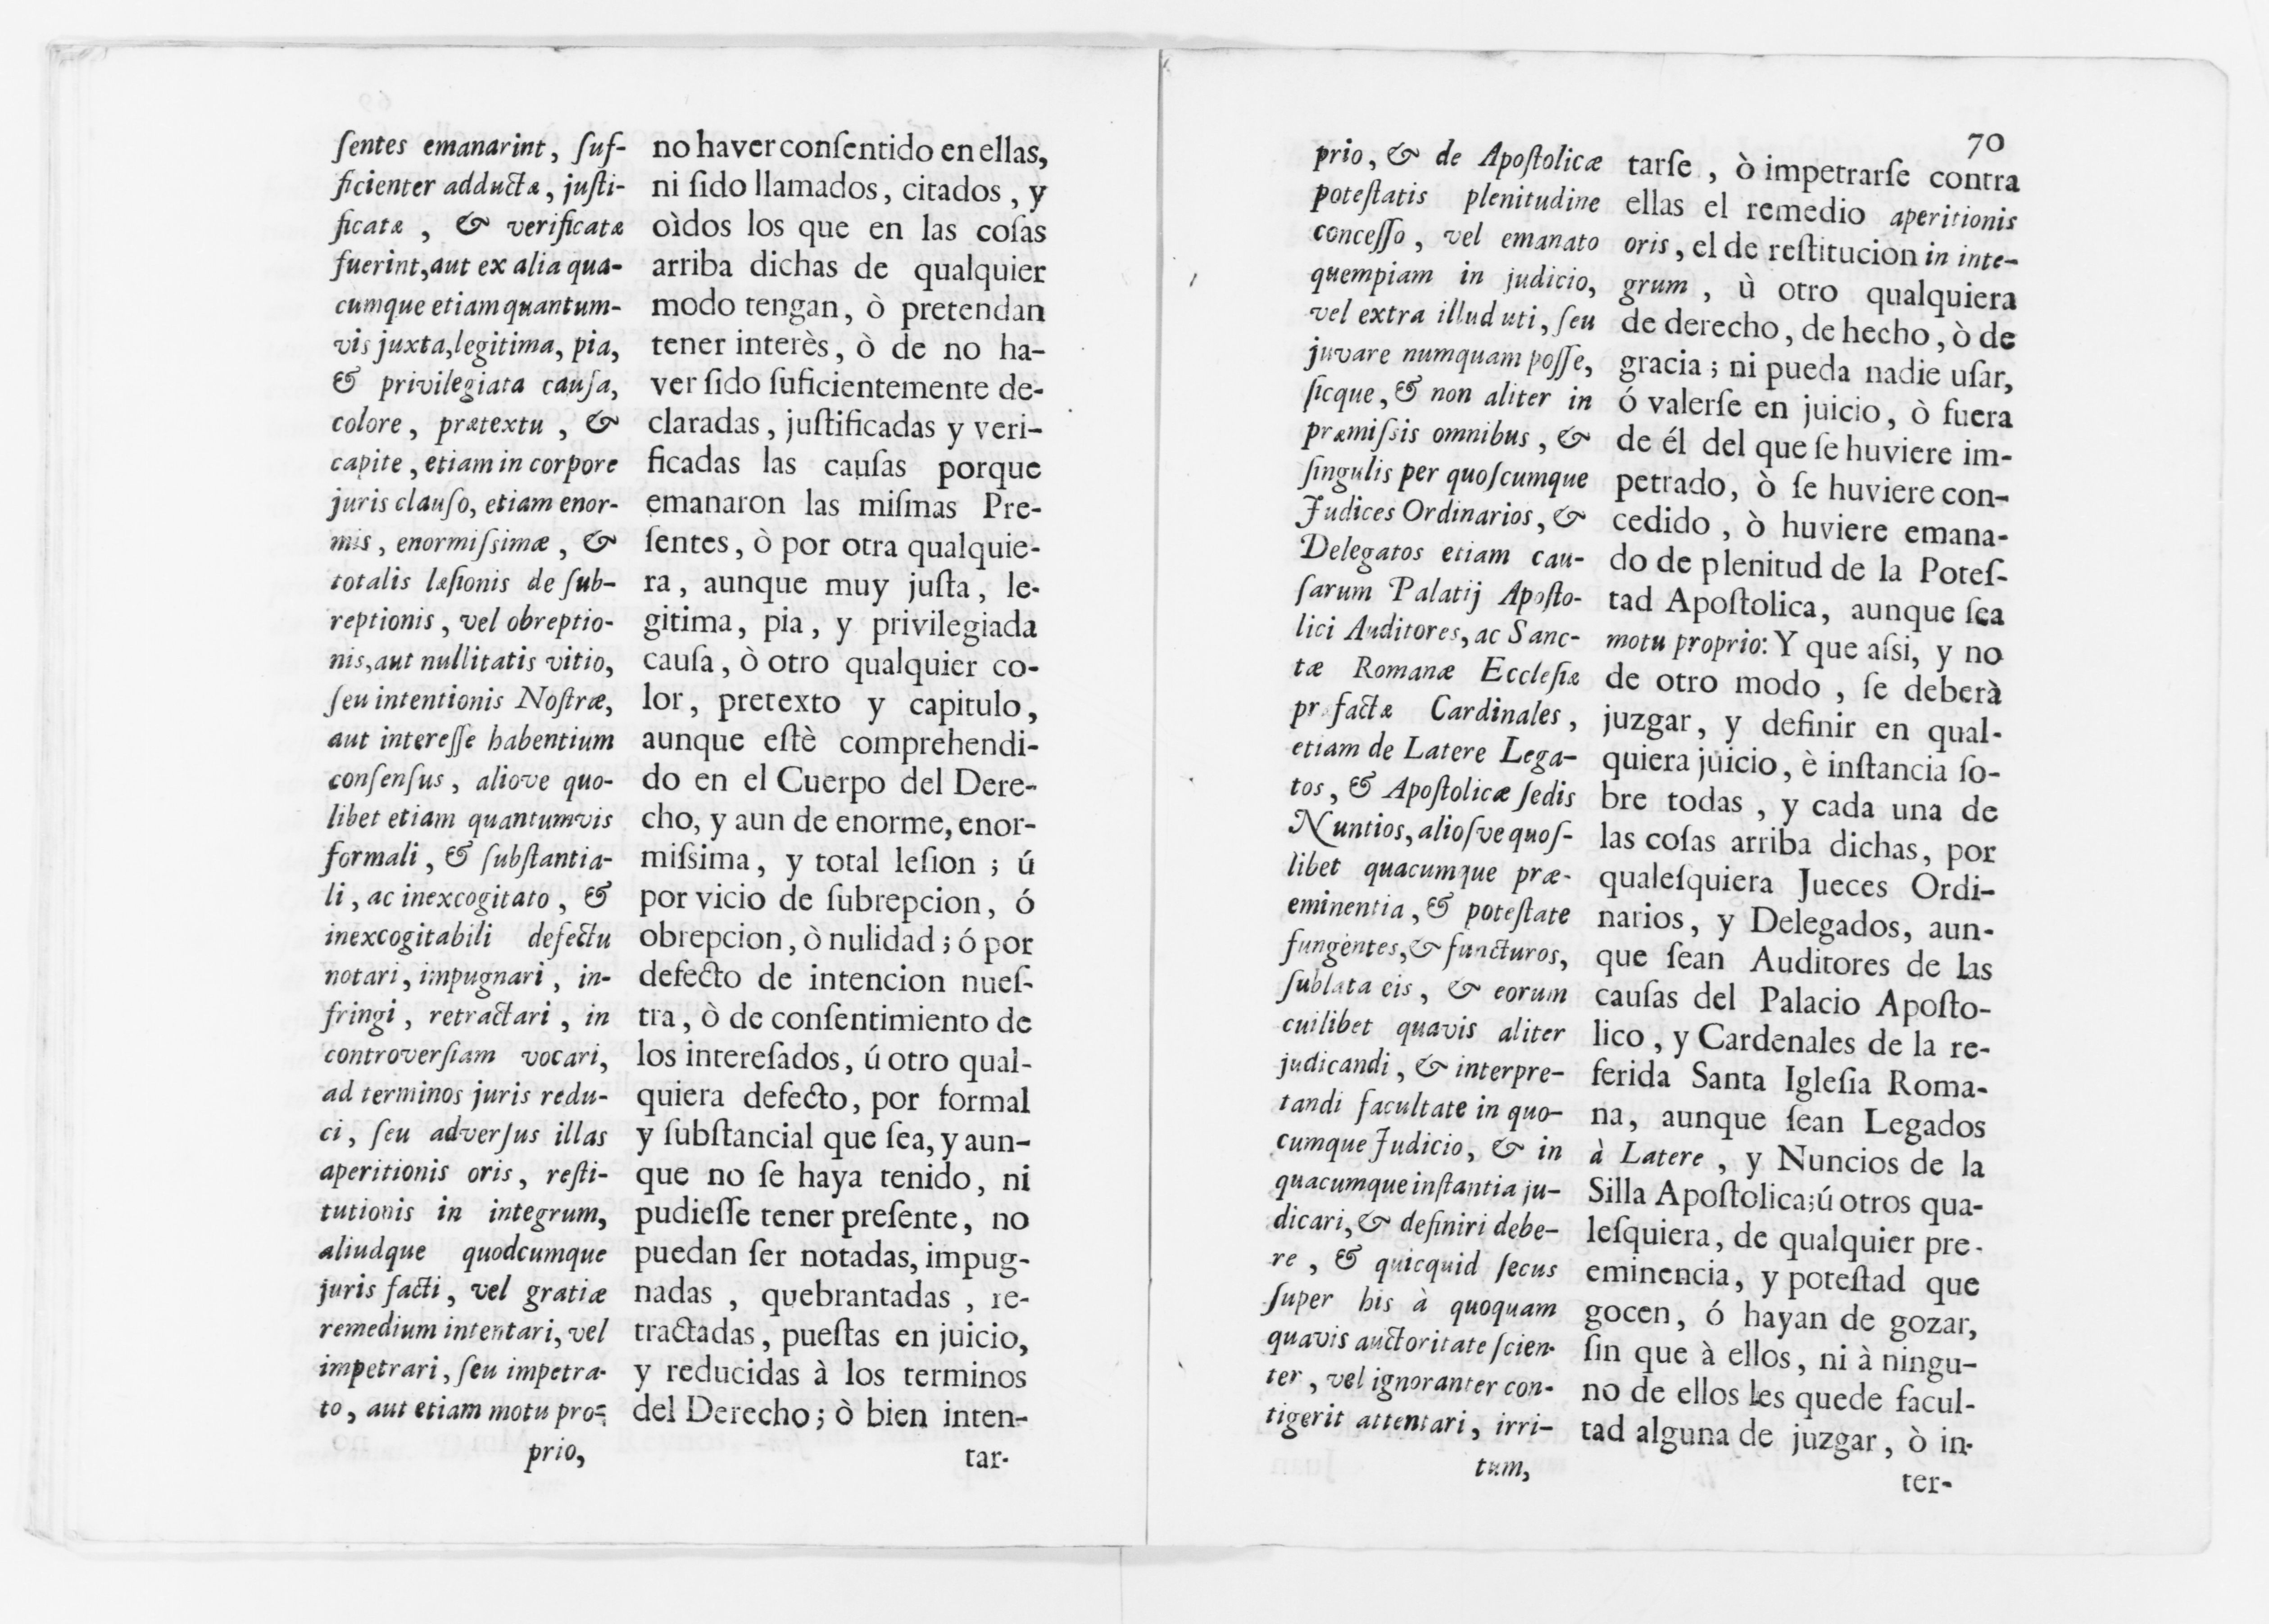 ſentes emanarint, ſuf-
ficienter adductæ, juſti-
ficatæ, & verificatæ
fuerint, aut ex alia qua-
cumque etiam quantum-
vis juxta, legitima, pia,
& privilegiata cauſa,
colore, prætextu, &
capite, etiam in corpore
juris clauſo, etiam enor-
mis, enormiſsimæ, &
totalis læſionis de ſub-
reptionis, vel obreptio-
nis, aut nullitatis vitio,
ſeu intentionis Noſtræ,
aut intereſſe habentium
conſenſus, aliove quo-
libet etiam quantumvis
formali, & ſubſtantia-
li, ac inexcogitato, &
inexcogitabili defectu
notari, impugnari, in-
fringi, retractari, in
controverſiam vocari,
ad terminos juris redu-
ci, ſeu adverſus illas
aperitionis oris, reſti-
tutionis in integrum,
aliudque quodcumque
juris facti, vel gratiæ
remedium intentari, vel
impetrari, ſeu impetra-
to, aut etiam motu pro-
prio,
no haver conſentido en ellas,
ni ſido llamados, citados, y
oìdos los que en las coſas
arriba dichas de qualquier
modo tengan, ò pretendan
tener interès, ò de no ha-
ver ſido ſuficientemente de-
claradas, juſtificadas y veri-
ficadas las cauſas porque
emanaron las miſmas Pre-
ſentes, ò por otra qualquie-
ra, aunque muy juſta, le-
gitima, pia, y privilegiada
cauſa, ò otro qualquier co-
lor, pretexto y capitulo,
aunque eſtè comprehendi-
do en el Cuerpo del Dere-
cho, y aun de enorme, enor-
miſsima, y total leſion; ú
por vicio de ſubrepcion, ó
obrepcion, ò nulidad; ó por
defecto de intencion nueſ-
tra, ò de conſentimiento de
los intereſados, ú otro qual-
quiera defecto, por formal
y ſubſtancial que ſea, y aun-
que no ſe haya tenido, ni
pudieſſe tener preſente, no
puedan ſer notadas, impug-
nadas, quebrantadas, re-
tractadas, pueſtas en juicio,
y reducidas à los terminos
del Derecho; ò bien inten-
tar-
70
prio, & de Apoſtolicæ
poteſtatis plenitudine
conceſſo, vel emanato
quempiam in judicio,
vel extra illud uti, ſeu
juvare numquam poſſe,
ſicque, & non aliter in
præmiſsis omnibus, &
ſingulis per quoſcumque
Judices Ordinarios, &
Delegatos etiam cau-
ſarum Palatij Apoſto-
lici Auditores, ac Sanc-
tæ Romanæ Eccleſiæ
prefactæ Cardinales,
etiam de Latere Lega-
tos, & Apoſtolicæ ſedis
Nuntios, alioſve quoſ-
libet quacumque præ-
eminentia, & poteſtate
fungentes, & functuros,
ſublata eis, & eorum
cuilibet quavis aliter
judicandi, & interpre-
tandi facultate in quo-
cumque Judicio, & in
quacumque inſtantia ju-
dicari, & definiri debe-
re, & quicquid ſecus
ſuper his à quoquam
quavis auctoritate ſcien-
ter, vel ignoranter con-
tigerit attentari, irri-
tum,
tarſe, ò impetrarſe contra
ellas el remedio aperitionis
oris, el de reſtitucion in inte-
grum, ù otro qualquiera
de derecho, de hecho, ò de
gracia; ni pueda nadie uſar,
ó valerſe en juicio, ò fuera
de él del que ſe huviere im-
petrado, ò ſe huviere con-
cedido, ò huviere emana-
do de plenitud de la Poteſ-
tad Apoſtolica, aunque ſea
motu proprio: Y que aſsi, y no
de otro modo, ſe deberà
juzgar, y definir en qual-
quiera juicio, è inſtancia ſo-
bre todas, y cada una de
las coſas arriba dichas, por
qualeſquiera Jueces Ordi-
narios, y Delegados, aun-
que ſean Auditores de las
cauſas del Palacio Apoſto-
lico, y Cardenales de la re-
ferida Santa Igleſia Roma-
na, aunque ſean Legados
à Latere, y Nuncios de la
Silla Apoſtolica; ú otros qua-
leſquiera, de qualquier pre-
eminencia, y poteſtad que
gocen, ó hayan de gozar,
ſin que à ellos, ni à ningu-
no de ellos les quede facul-
tad alguna de juzgar, ò in-
ter-